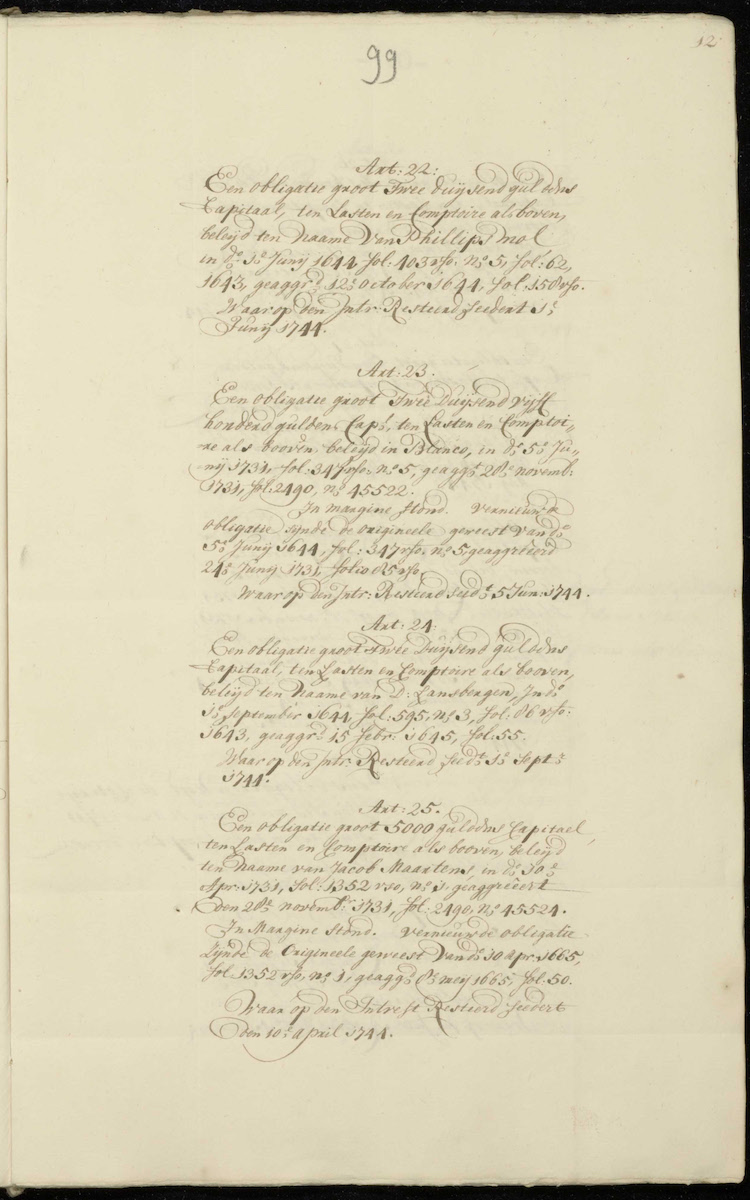 99
12
Art: 22:
Een obligatie groot Twee duijsend guldens
Capitaal, ten Lasten en Comptoire als boven,
beleijd ten Naame Van Phillips mol
in do. 1e Junij 1644, fol: 403 vso. No. 5, fol: 62,
1643, geaggrd. 12e October 1644, fol: 150 vso.
Waar op den Intr: Resteerd zeedert 1e
Junij 1744.
Art: 23.
Een obligatie groot Twee Duijsend vijff
honderd guldens Capl, ten Lasten en Comptoi„
re als booven, beleijd in Blanco, in do. 5e Ju„
nij 1731, fol: 347 vso: No 5, geaggt. 28e novemb:
1731, fol: 2490, No 45522.
In margine stond. Vernieuwde
obligatie zijnde de origineele geweest Van do
5e Junij 1644, fol: 347 vso. No 5, geaggreerd
24e Junij 1731, folio 85 vso.
Waar op den Intr: Resteerd seedt 5 Jun: 1744.
Art: 24:
Een obligatie groot Twee Duijsend guldens
Capitaal, ten Lasten en Comptoire als booven,
beleijd ten Naame van D: Lansbergen, In do
1e september 1644, fol: 595, No 3, fol: 86 vso:
1643, geaggrd. 15 febr: 1645, fol: 55.
Waar op den Intr: Resteerd seedt 1e Septr
1744.
Art: 25.
Een obligatie groot 5000 guldens Capitael,
ten Lasten en Comptoire als booven, beleijd
ten Naame van Jacob Maartens, in do. 10e
Apr: 1731, fol: 1352 vso, No 1, geaggreeert
den 28e novemb: 1731, fol: 2490, No 45524.
In Margine stond. Vernieuwde obligatie
Zijnde de Origineele geweest Van do 10 apr: 1665,
fol: 1352 vso, No 1, geaggt 8e meij 1665, fol: 50.
Waar op den Intrest Resteerd zeedert
den 10e april 1744.